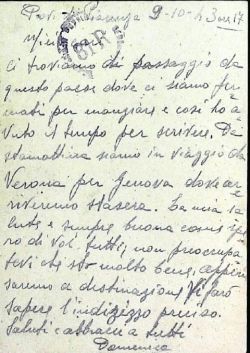 Prov. di Piacenza 9-10-43 ore 17
ci troviamo di passaggio da
questo paese dove ci siamo fer
mati per mangiare e così ho a
vuto il tempo per scrivere. Da
stamattina siamo in viaggio da
Verona per Genova dove ar
riveremo stasera. La mia sa
lute è sempre buona come spe
ro di voi tutti, non preoccupa
tevi che sto molto bene, appena
saremo a destinazione vi farò
sapere l'indirizzo preciso.
Saluti e abbracci a tutti
Domenico